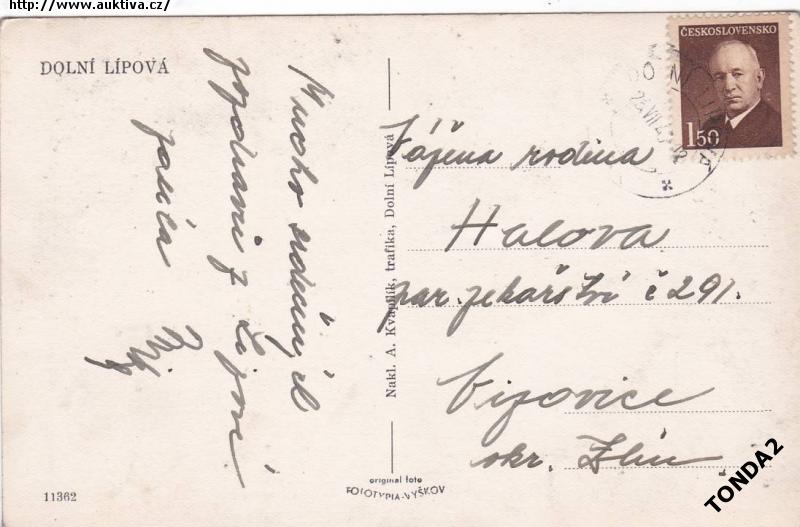 http://www.auktiva.cz/
DOLNÍ LÍPOVÁ
Mnoho srdečných
pozdravů z Lipové
Nakl. A. Kvapilík, trafika, Dolní Lípová
ČESKOSLOVENSKO
1 50
Vážená rodina
Halova
par. pekařství č 291.
Vizovice
okr. Zlín
11362
original foto
FOTOTYPIA-VYŠKOV
TONDA2